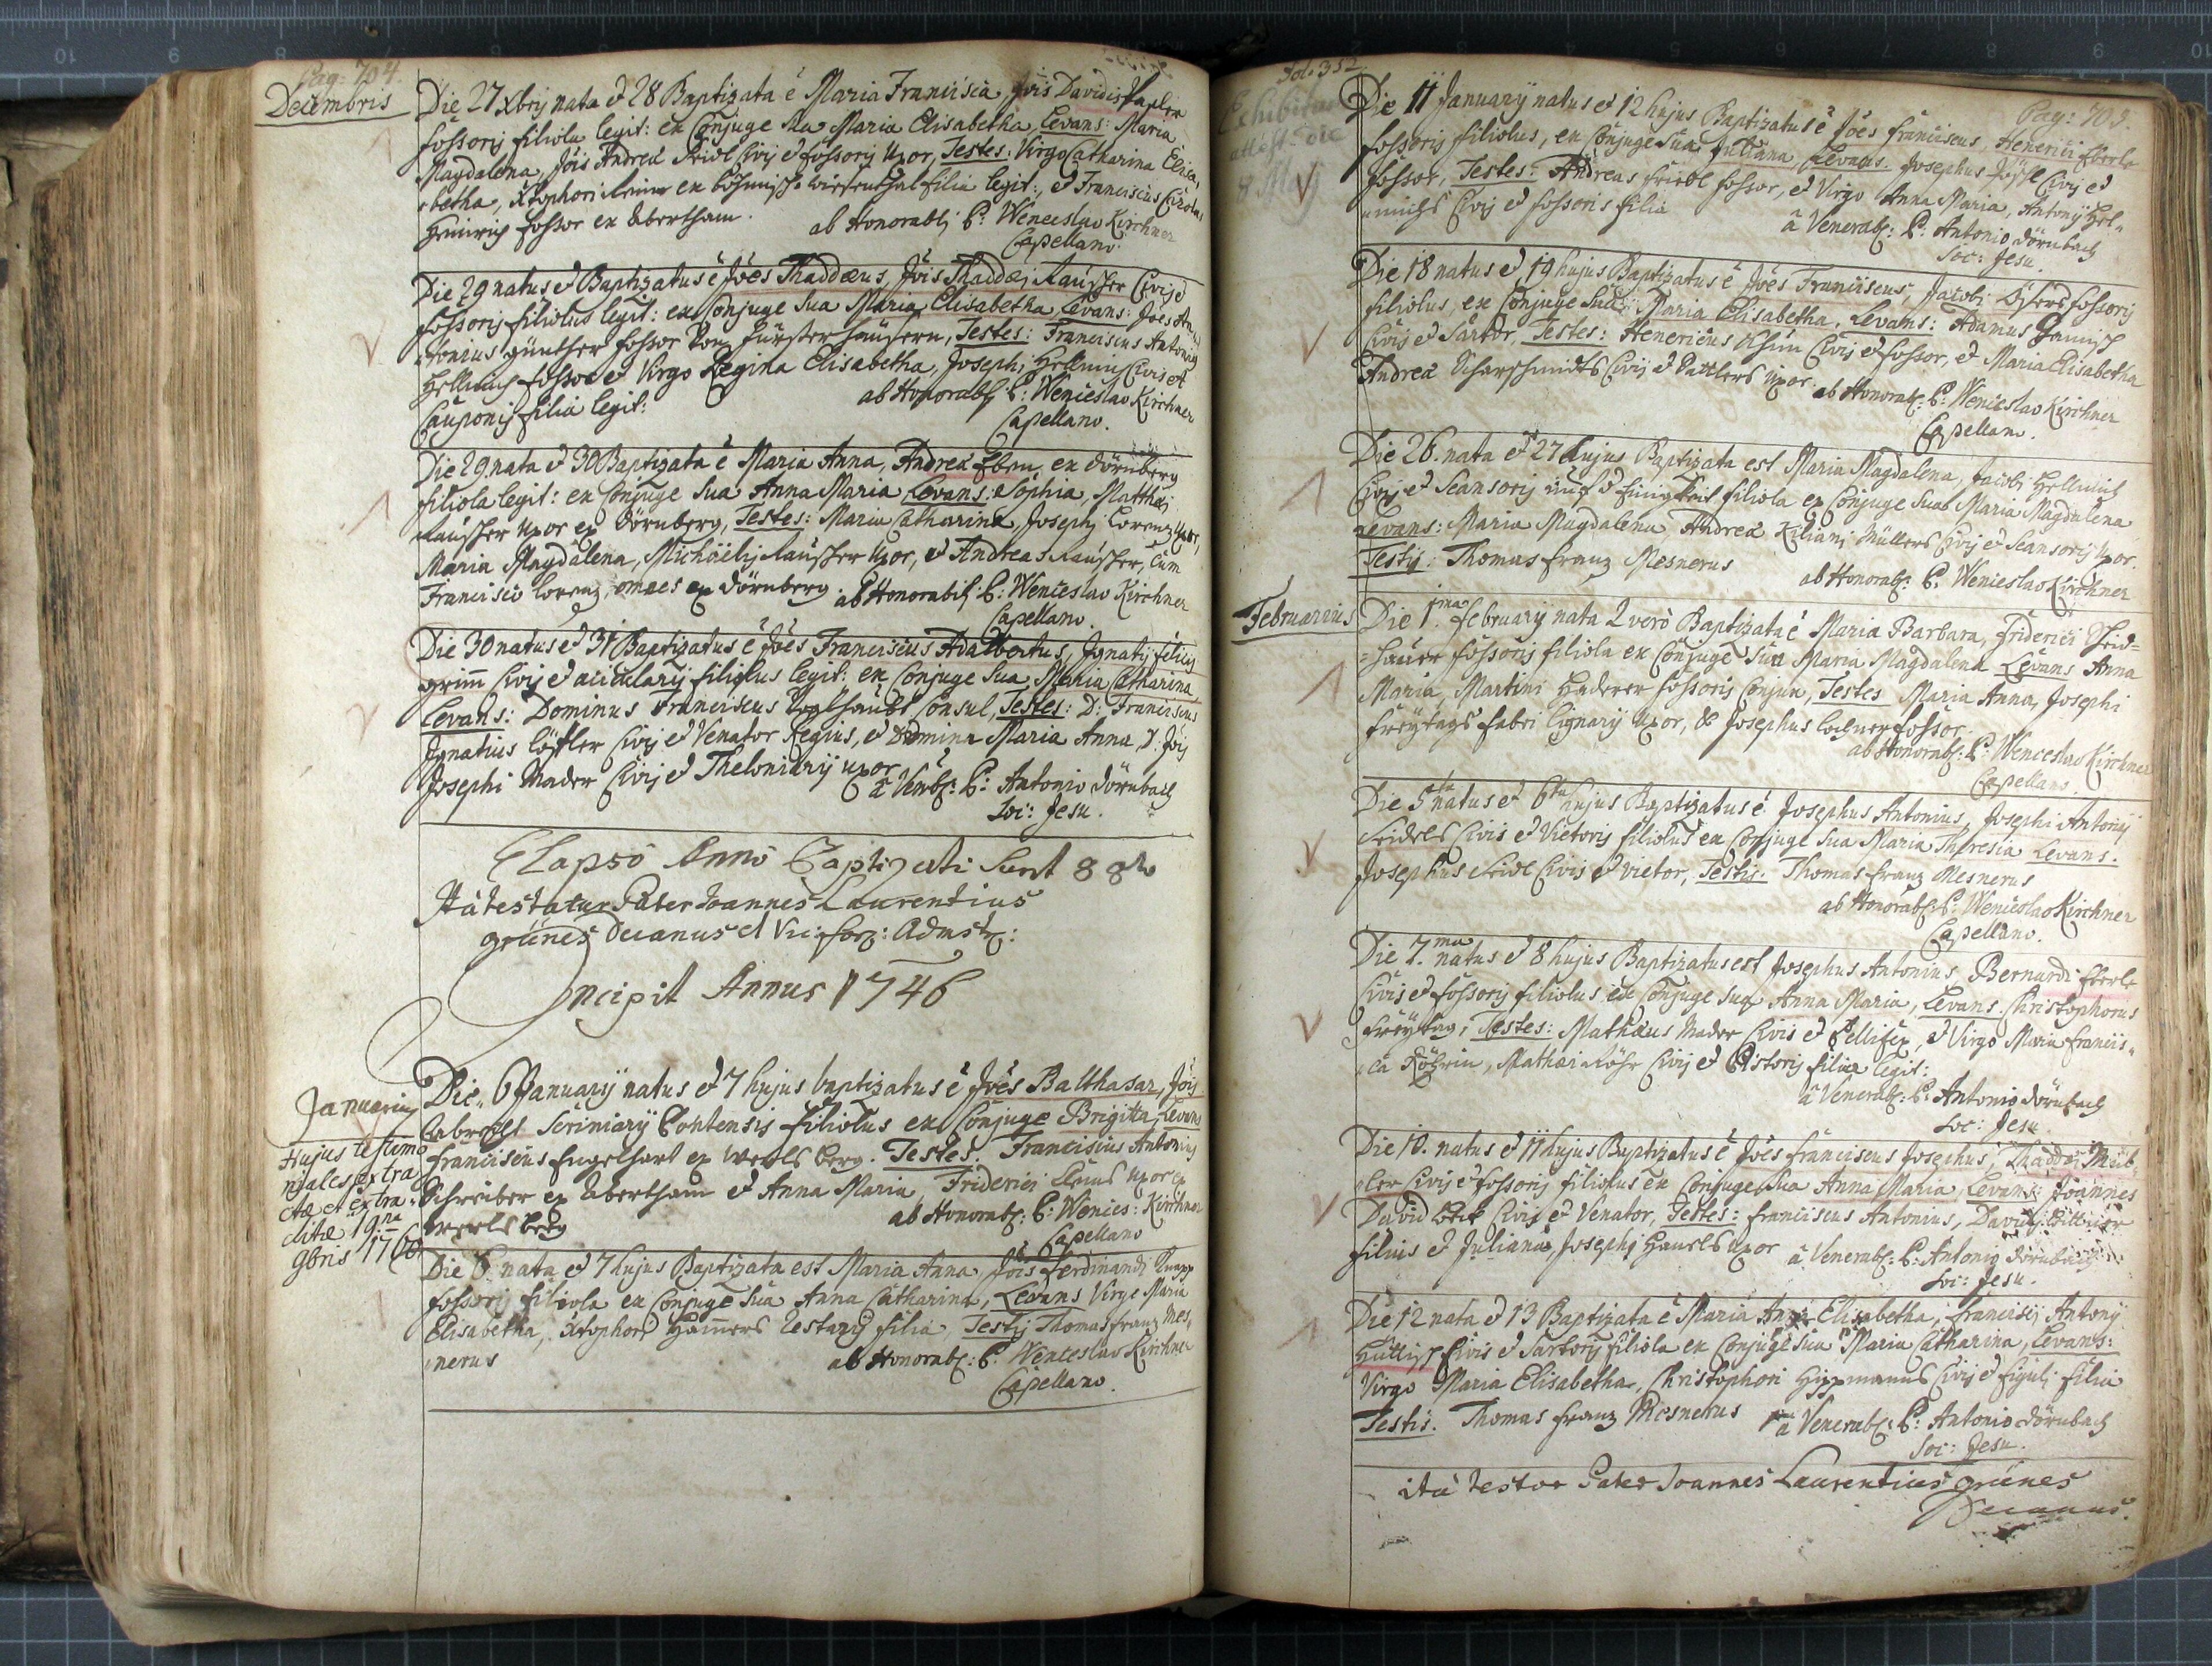 Pag: 704.
Decembris
Die 27 Xbrij nata et 28 Baptizata ē Maria Francisca, Jōis Davidis
fossoris filiola legit: ex Conjuge sua Maria Elisabetha, Levans: Maria
Magdalena, Jōis Andreæ Seidl Civis et fossoris Uxor, Testes: Virgo Catharina Elisa,
betha, Xtophori ex böhmisch wiesenthal filia legit:, et Franciscus
Heinrich fossor ex Abertham.
ab Honorabli P: Wenceslao Kirchner
Capellano.
Die 29 natus et Baptizatus ē Jōes Thaddæus, Jōis Thaddæj Lauscher Civis et
fossoris filiolus legit: ex Conjuge sua Maria Elisabetha, Levans: Jōes An,
tonius günther fossor Von fürster häusern, Testes: Franciscus Antonius
Hellmich fossor et Virgo Regina Elisabetha, Josephi Hellmich Civis et
Cauponis filia legit:
ab Honorabli P: Wenceslao Kirchner
Capellano.
Die 29 nata et 30 Baptizata ē Maria Anna, Andreæ ex dörnberg
filiola legit: ex Conjuge sua Anna Maria Levans: Sophia, Matthæi
Lauscher Uxor ex Dörnberg, Testes: Maria Catharina, Josephi Lorenz Uxor,
Maria Magdalena, Michäelis Lauscher Uxor, et Andreas Lauscher, Cum
Francisco Lorenz, omnes ex Dörnberg. ab Honorabili P: Wenceslao Kirchner
Capellano.
Die 30 natus et 31 Baptizatus ē Jōes Franciscus Adalbertus, Ignatij felicis
grimm Civis et acicularij filiolus legit: ex Conjuge sua Maria Catharina
Levans: Dominus Franciscus Consul, Testes: D: Franciscus
Ignatius löffler Civis et Venator Regius, et Domina Maria Anna, D: Jōis
Josephi Mader Civis et Theloniarij uxor
à Venbl: P: Antonio Dörnbach
Soc: Jesu.
Elapso Anno Baptizati sunt 88
Ita testatur Pater Joannes Laurentius
grünes Decanus et Vic: for: Admstr:
Incipit Annus 1746
Januarius
Die 6 Januarij natus et 7 hujus baptizatus ē Jōes Balthasar, Jōis
Scriniarij filiolus ex Conjuge Brigitta, Levans
Franciscus Engelhart ex Testes: Franciscus Antonius
Schreiber ex Abertham et Anna Maria, Friderici uxor ex
ab Honorabl: P: Wences: Kirchner
Capellano
Hujus testimo
niales extra
ctæ et extra
ditæ 19na
9bris 1760
Die 6 nata et 7 hujus Baptizata est Maria Anna, Jōis Ferdinandi Knapp
fossoris filiola ex Conjuge sua Anna Catharina, Levans Virgo Maria
Elisabetha, Xtophori Hamers Testarij filia, Testis Thomas franz Mes,
nerus
ab Honorabl: P: Wenceslao Kirchner
Capellano.
Fol: 352
Pag: 705.
Exhibitum
attest: die
8 Maij
Die 11 Januarij natus et 12 hujus Baptizatus ē Jōes Franciscus, Henerici Eberle
fossoris filiolus, ex Conjuge sua Juliana, Levans. Josephus Civis et
fossor, Testes: Andreas friedl fossor, et Virgo Anna Maria, Antonij Hel,
michs Civis et fossoris filia
à Venerabl: P: Antonio Dörnbach
Soc: Jesu.
Die 18 natus et 19 hujus Baptizatus ē Jōes Franciscus, Jacobi fossoris
filiolus, ex Conjuge sua Maria Elisabetha, Levans: Adamus
Civis et Sartor, Testes: Henericus Civis et fossor, et Maria Elisabetha
Andreæ Scharschmidts Civis et Sattlers uxor. ab Honorabl: P: Wenceslao Kirchner
Capellano.
Die 26. nata et 27 hujus Baptizata est Maria Magdalena, Jacobi Hellmich
Civis et Scansoris filiola ex Conjuge sua Maria Magdalena
Levans: Maria Magdalena, Andreæ Kiliani Müllers Civis et Scansoris Uxor.
Testis: Thomas franz Mesnerus
ab Honorabl: P: Wenceslao Kirchner
Februarius
Die 1ma februarij nata 2 verò Baptizata ē Maria Barbara, Friderici
hauer fossoris filiola ex Conjuge sua Maria Magdalena Levans Anna
Maria, Martini Haderer fossoris Conjux, Testes Maria Anna, Josephi
freytags fabri lignarij uxor, & Josephus fossor.
ab Honorabl: P: Wenceslao Kirchner
Capellano.
Die 5ta natus et 6ta hujus Baptizatus ē Josephus Antonius, Josephi Antonij
Seidls Civis et Vietoris filiolus ex Conjuge sua Maria Theresia Levans.
Josephus Seidl Civis et vietor, Testis: Thomas franz Mesnerus
ab Honorabl: P: Wenceslao Kirchner
Capellano.
Die 7.ma natus et 8 hujus Baptizatus est Josephus Antonius, Bernardi Eberle
Civis et fossoris filiolus ex Conjuge sua Anna Maria, Levans Christophorus
freytag, Testes: Mathæus Mader Civis et Pellifex, et Virgo Maria Francis,
ca Röhrin, Mathæi Röhr Civis et Pistoris filia legit:
à Venerabl: P: Antonio Dörnbach
Soc: Jesu.
Die 10. natus et 11 hujus Baptizatus ē Jōes Franciscus Josephus, Thaddæi
ler Civis et fossoris filiolus ex Conjuge sua Anna Maria, Levans: Joannes
David Civis et Venator, Testes: Franciscus Antonius, Davidis
filius et Juliana, Josephi uxor à Venerabl: P: Antonio Dörnbach
Soc: Jesu.
Die 12 nata et 13 Baptizata ē Maria Anna Elisabetha, Francisci Antonij
Civis et Sartoris filiola ex Conjuge sua Maria Catharina, Levans:
Virgo Maria Elisabetha, Christophori Hippmanns Civis et figuli filia
Testis. Thomas franz Mesnerus à Venerabl: P: Antonio Dörnbach
Soc: Jesu.
ità testor Pater Joannes Laurentius grünes
Decanus.